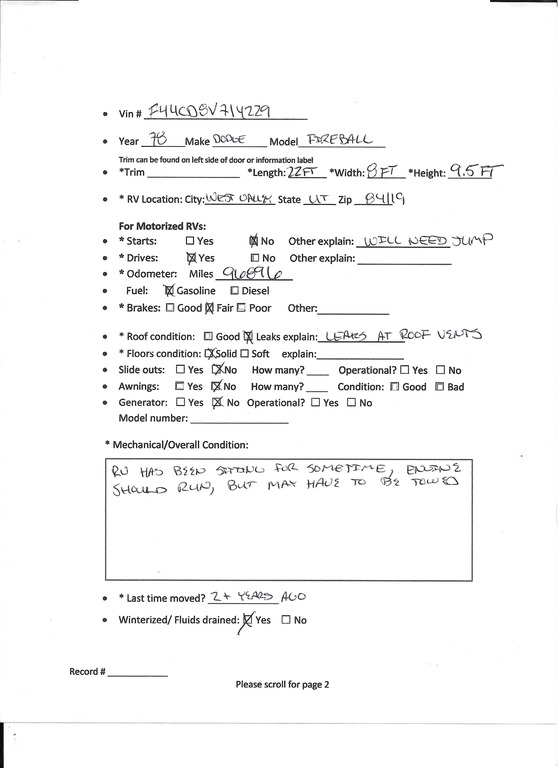 • Vin # F44CD8V714229
• Year 78 Make DODGE Model FIREBALL
Trim can be found on left side of door or information label
• *Trim ____ *Length: 22FT *Width: 8FT *Height: 9.5 FT
• * RV Location: City: WEST VALLEY State UT Zip 84119
For Motorized RVs:
• * Starts: ☐ Yes ☒ No Other explain: WILL NEED JUMP
• * Drives: ☒ Yes ☐ No Other explain: ____
• * Odometer: Miles 96896
• Fuel: ☒ Gasoline ☐ Diesel
• * Brakes: ☐ Good ☒ Fair ☐ Poor Other: ____
• * Roof condition: ☐ Good ☒ Leaks explain: LEAKS AT ROOF VENTS
• * Floors condition: ☒ Solid ☐ Soft explain: ____
• Slide outs: ☐ Yes ☒ No How many? ____ Operational? ☐ Yes ☐ No
• Awnings: ☐ Yes ☒ No How many? ____ Condition: ☐ Good ☐ Bad
• Generator: ☐ Yes ☒ No Operational? ☐ Yes ☐ No
Model number: ____
* Mechanical/Overall Condition:
RV HAS BEEN SITTING FOR SOMETIME, ENGINE
SHOULD RUN, BUT MAY HAVE TO BE TOWED
• * Last time moved? 2+ YEARS AGO
• Winterized/ Fluids drained: ☒ Yes ☐ No
Record # ____
Please scroll for page 2